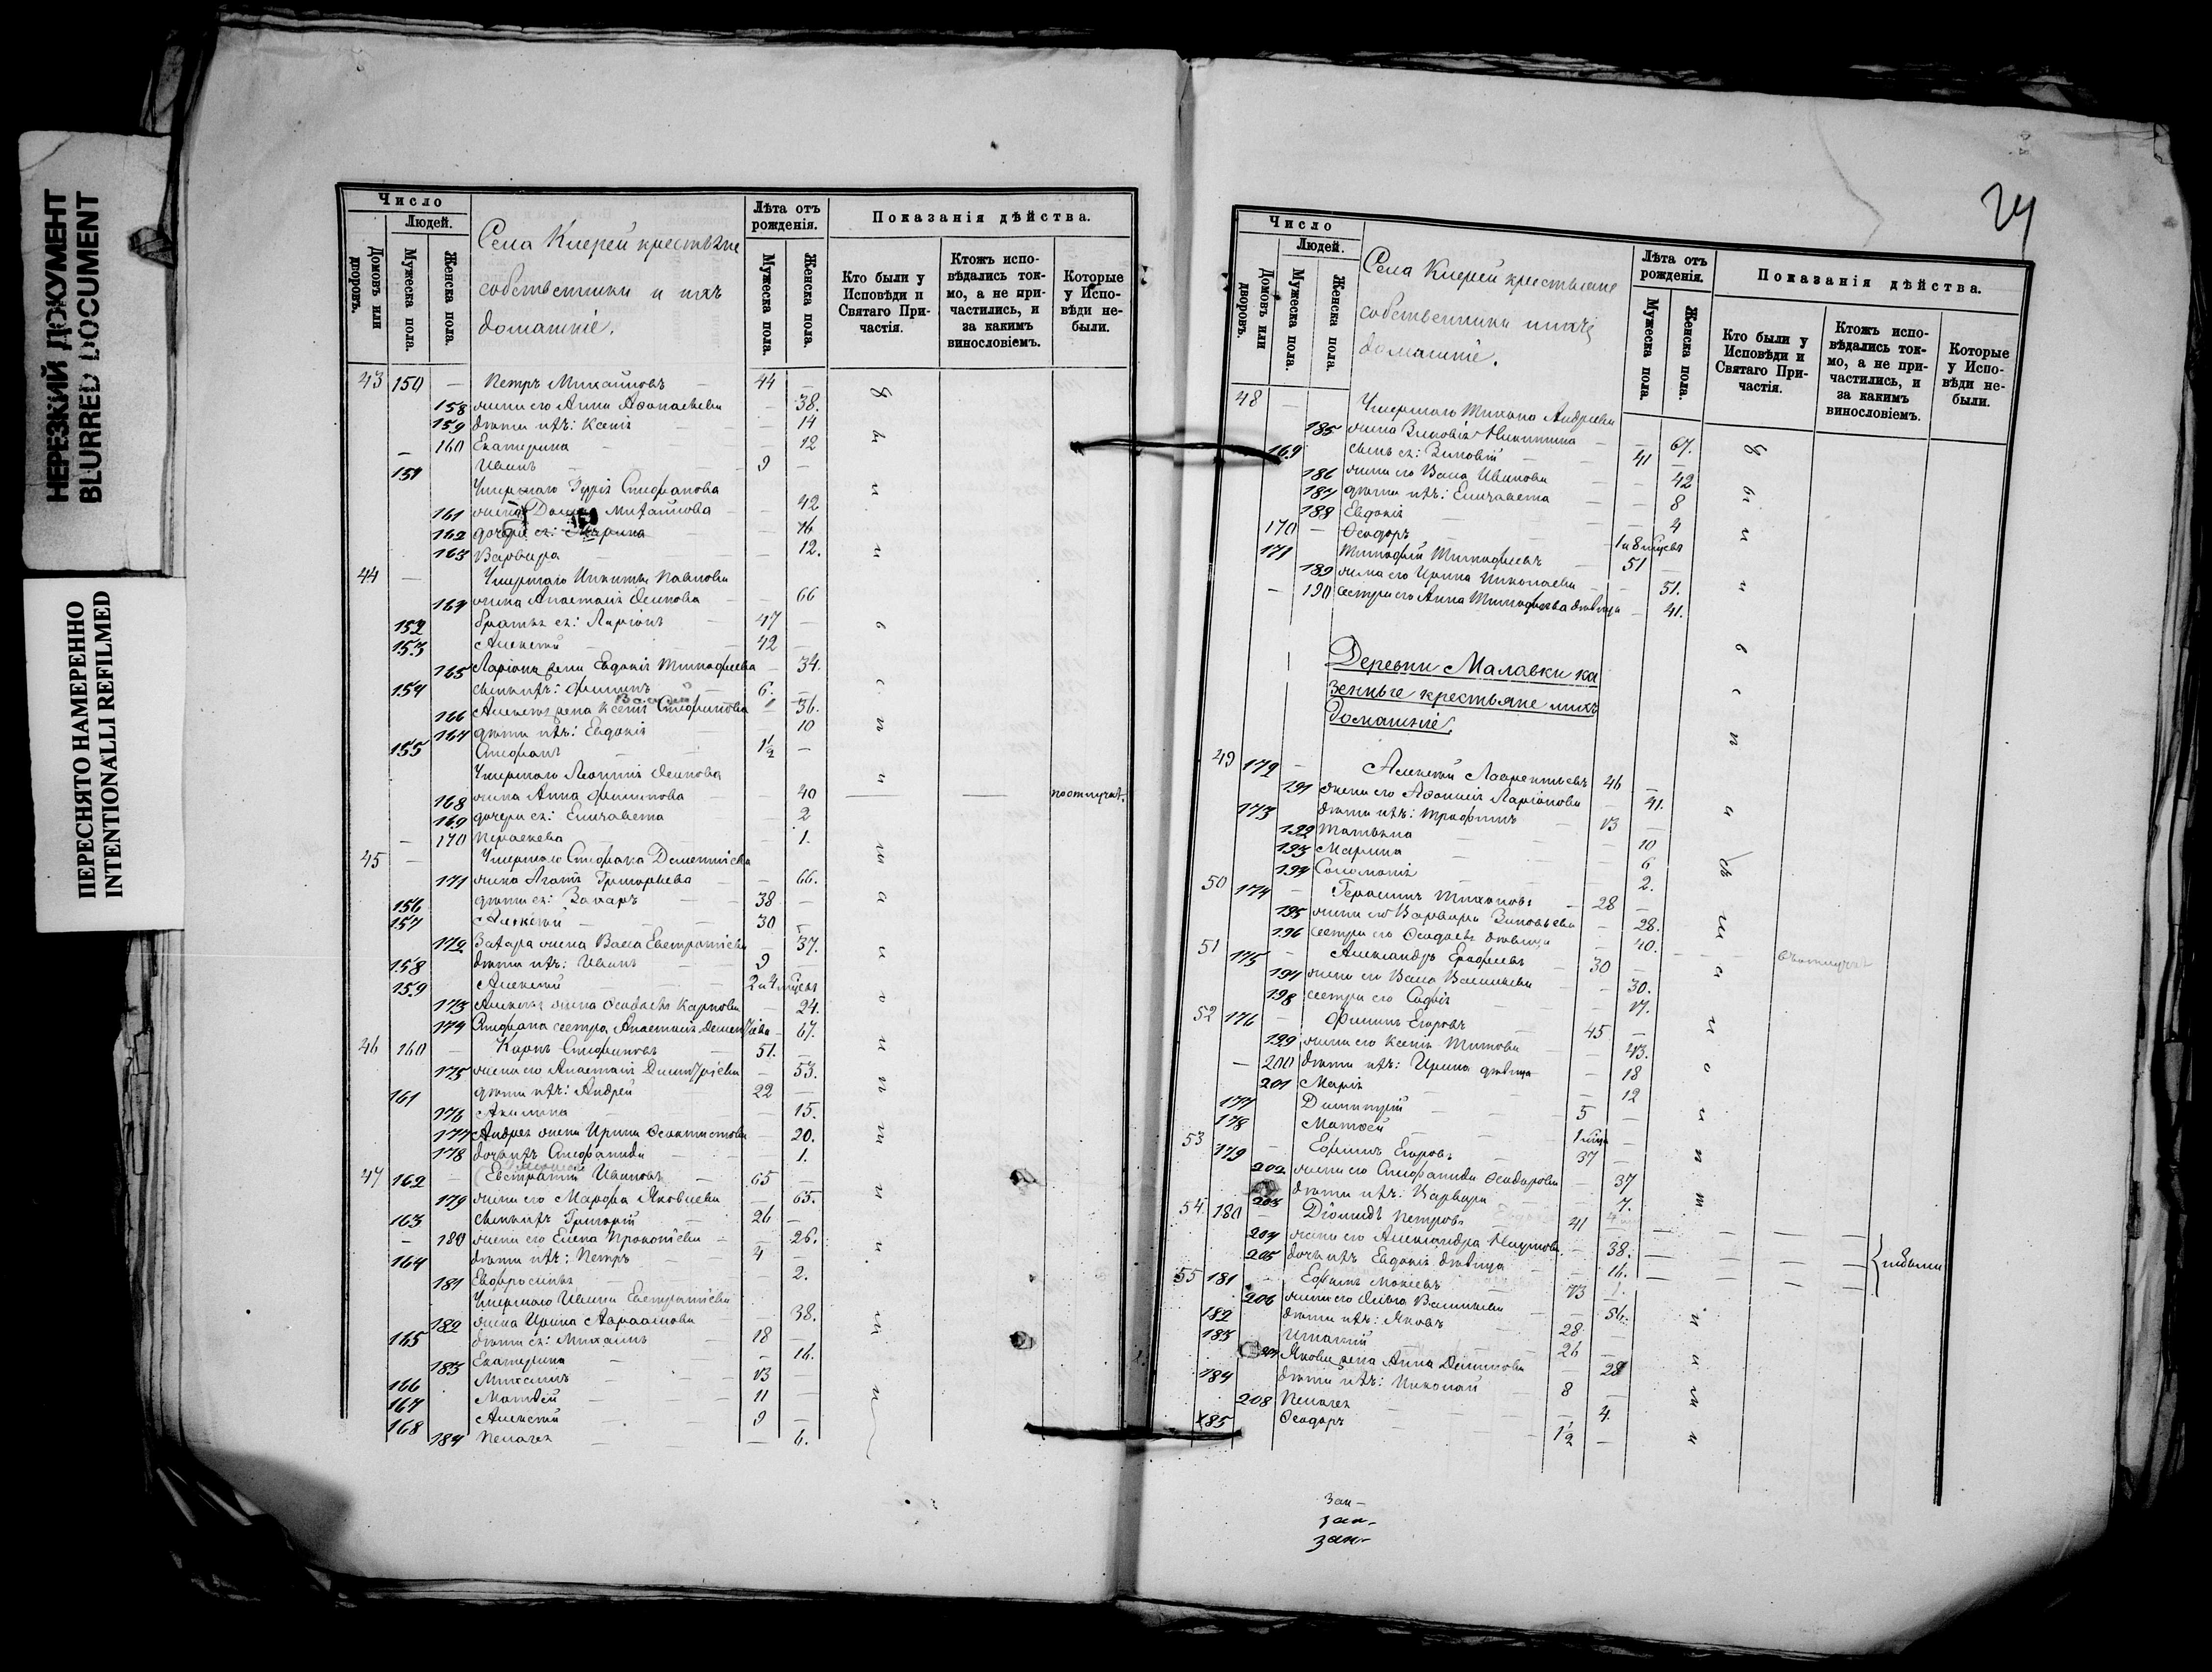 НЕРЕЗКИЙ ДОКУМЕНТ
BLURRED DOCUMENT
ПЕРЕСНЯТО НАМЕРЕННО
INTENTIONALLI REFILMED
Число
Людей.
Домовъ или дворовъ.
Мужеска пола.
Женска пола.
Села Киерей крестьяне
собственники и ихъ
домашніе.
Лѣта отъ рожденія.
Мужеска пола.
Женска пола.
Показанія дѣйства.
Кто были у Исповѣди и Святаго Причастія.
Ктожъ исповѣдались токмо, а не причастились, и за какимъ винословіемъ.
Которые у Исповѣди небыли.
43 150 — Петръ Михайловъ — 44 —
158 жена его Анна Аѳанасьева — 38.
159 дѣти ихъ: Ксенія — 14
160 Екатерина — 12
151 Иванъ — 9 —
Умершаго Стефанова
161 жена Михайлова — 42
162 дочери ея: Марина — 16
163 Варвара — 12.
44 — Умершаго Никиты Павлова
164 жена Анастасія — 66
152 братья ея: Ларіонъ — 47 —
153 Алексѣй — 42 —
165 Ларіона жена Евдокія Тимофеева — 34.
154 сынъ ихъ: Филиппъ — 6. —
166 Алексѣя жена Ксенія Стефанова — 36.
167 дѣти ихъ: Евдокія — 10
155 Стефанъ — 1½ —
Умершаго Леонтія
168 жена Анна Филиппова — 40 — — по отлучкѣ.
169 дочери ея: Елизавета — 2
170 Параскева — 1.
45 — Умершаго Стефана Дементіева
171 жена Агафія Григорьева — 66.
156 дѣти ея: Захаръ — 38 —
157 Алексѣй — 30 —
172 Захара жена Васса Евстратіева — 37.
158 дѣти ихъ: Иванъ — 9 —
159 Алексѣй — 2 и 4 мѣсяц
173 Алексѣя жена Ѳеодосія Карпова — 24.
174 Стефана сестра Анастасія Дементіева — 67.
46 160 — Карпъ Стефановъ — 51. —
175 жена его Анастасія Димитріева — 53.
161 дѣти ихъ: Андрей — 22 —
176 Акилина — 15.
177 Андрея жена Ирина Ѳеоктистова — 20.
178 дочь ихъ Стефанида — 1.
47 162 — Евстратій Ивановъ — 65 —
179 жена его Марфа Яковлева — 65.
163 сынъ ихъ Григорій — 26 —
180 жена его Елена Прокопіева — 26.
164 дѣти ихъ: Петръ — 4 —
181 Евфросинія — 2.
Умершаго Ивана Евстратіева
182 жена Ирина Авраамова — 38.
165 дѣти ея: Михаилъ — 18 —
183 Екатерина — 16.
166 Михаилъ — 13 —
167 Матвѣй — 11 —
168 Алексѣй — 9 —
184 Пелагея — 6.
24
Число
Людей.
Домовъ или дворовъ.
Мужеска пола.
Женска пола.
Села Киерей крестьяне
собственники и ихъ
домашніе.
Лѣта отъ рожденія.
Мужеска пола.
Женска пола.
Показанія дѣйства.
Кто были у Исповѣди и Святаго Причастія.
Ктожъ исповѣдались токмо, а не причастились, и за какимъ винословіемъ.
Которые у Исповѣди небыли.
48 — Умершаго Тихона Андреева
185 жена Зиновія Никитина — 67.
169 сынъ ея: Зиновій — 41 —
186 жена его Васса Иванова — 42
187 дѣти ихъ: Елизавета — 8
188 Евдокія — 4
170 — Ѳеодоръ — 1 и 8 мѣсяц
171 Тимофей Тимофеевъ — 51 —
189 жена его Ирина Николаева — 51.
190 сестра его Анна Тимофеева дѣвица — 41.
Деревни Малавки ка
зенные крестьяне и ихъ
домашніе.
49 172 — Алексѣй Лаврентьевъ 46 —
191 жена его Аѳанасія Ларіонова — 41.
173 дѣти ихъ: Трофимъ — 13 —
192 Татьяна — 10
193 Марина — 6
194 Соломонія — 2.
50 174 — Герасимъ Тихоновъ — 28 —
195 жена его Варвара Зиновьева — 28.
196 сестра его Ѳеодосія дѣвица — 40.
51 175 — Александръ Ерофеевъ — 30 —
197 жена его Васса Васильева — 30.
198 сестра его Софія — 17.
52 176 — Филиппъ Егоровъ — 45 —
199 жена его Ксенія Титова — 43.
200 дѣти ихъ: Ирина дѣвица — 18
201 Марія — 12
177 Димитрій — 5 —
178 Матвѣй — 1 мѣся —
53 179 — Ефимъ Егоровъ — 37 —
202 жена его Стефанида Ѳеодорова — 37
203 дѣти ихъ: Варвара — 7.
54 180 — Діомидъ Петровъ — 41 —
204 жена его Александра Наумова — 38.
205 дочь ихъ Евдокія дѣвица — 16.
небыли
55 181 Ефимъ Мокеевъ — 73
206 жена его Ольга Васильева — 56.
182 дѣти ихъ: Яковъ — 28 —
183 Игнатій — 26 —
207 Якова жена Анна — 28
184 дѣти ихъ: Николай — 8 —
208 Пелагея — 4.
185 Ѳеодоръ — 1½ —
зан-
зан-
зан-